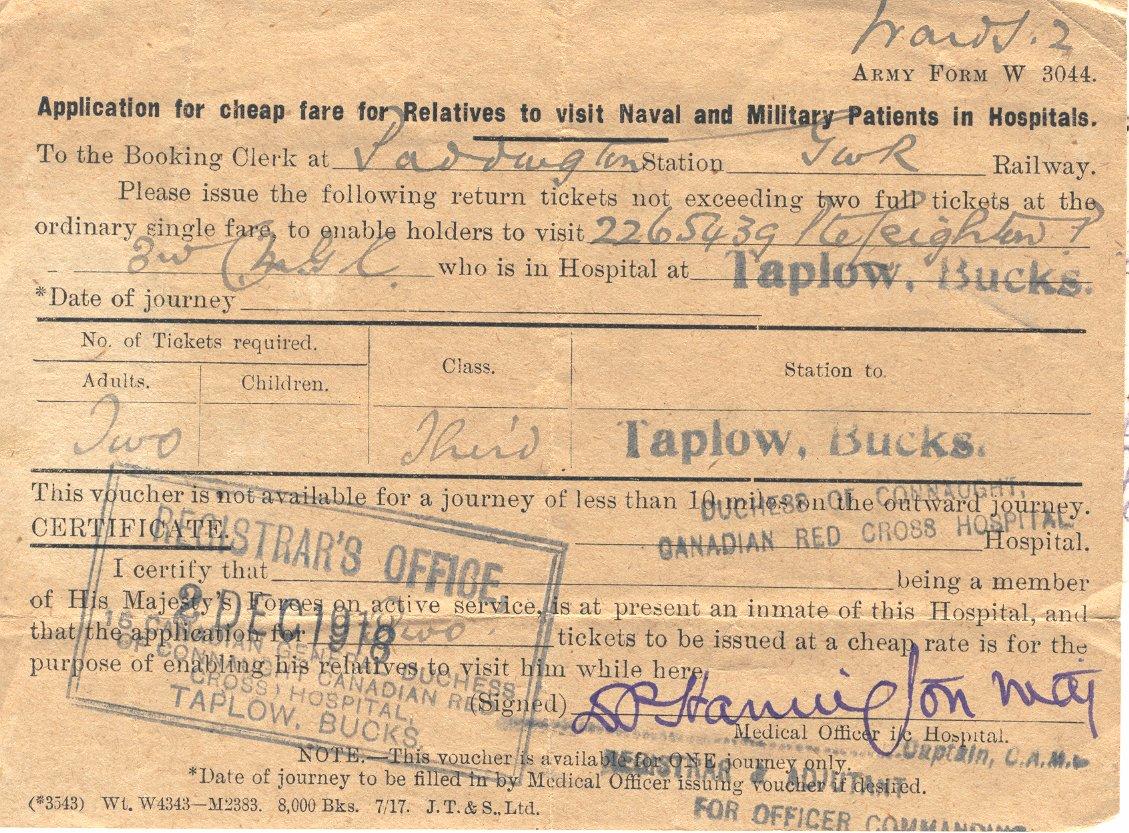 Ward S. 2
ARMY FORM W 3044.
Application for cheap fare for Relatives to visit Naval and Military Patients in Hospitals.
To the Booking Clerk at Paddington Station GWR Railway.
Please issue the following return tickets not exceeding two full tickets at the
ordinary single fare, to enable holders to visit 2265439 Pte Leighton F
3rd C.M.G.C. who is in Hospital at Taplow, Bucks.
*Date of journey
No. of Tickets required.
Adults. Children. Class. Station to
Two Third Taplow, Bucks.
This voucher is not available for a journey of less than 10 miles on the outward journey.
DUCHESS OF CONNAUGHT,
CANADIAN RED CROSS HOSPITAL
CERTIFICATE. Hospital.
I certify that being a member
of His Majesty's Forces on active service, is at present an inmate of this Hospital, and
that the application for Two tickets to be issued at a cheap rate is for the
purpose of enabling his relatives to visit him while here.
REGISTRAR'S OFFICE,
DEC 1918
15 CANADIAN GENERAL DUCHESS
OF CONNAUGHT CANADIAN RED
CROSS) HOSPITAL,
TAPLOW, BUCKS
(Signed) Hannington
Medical Officer i/c Hospital.
Captain, C.A.M.C
REGISTRAR & ADJUTANT
FOR OFFICER COMMANDING
NOTE.—This voucher is available for ONE journey only.
*Date of journey to be filled in by Medical Officer issuing voucher if desired.
(*3543) Wt. W4343—M2383. 8,000 Bks. 7/17. J.T.& S., Ltd.